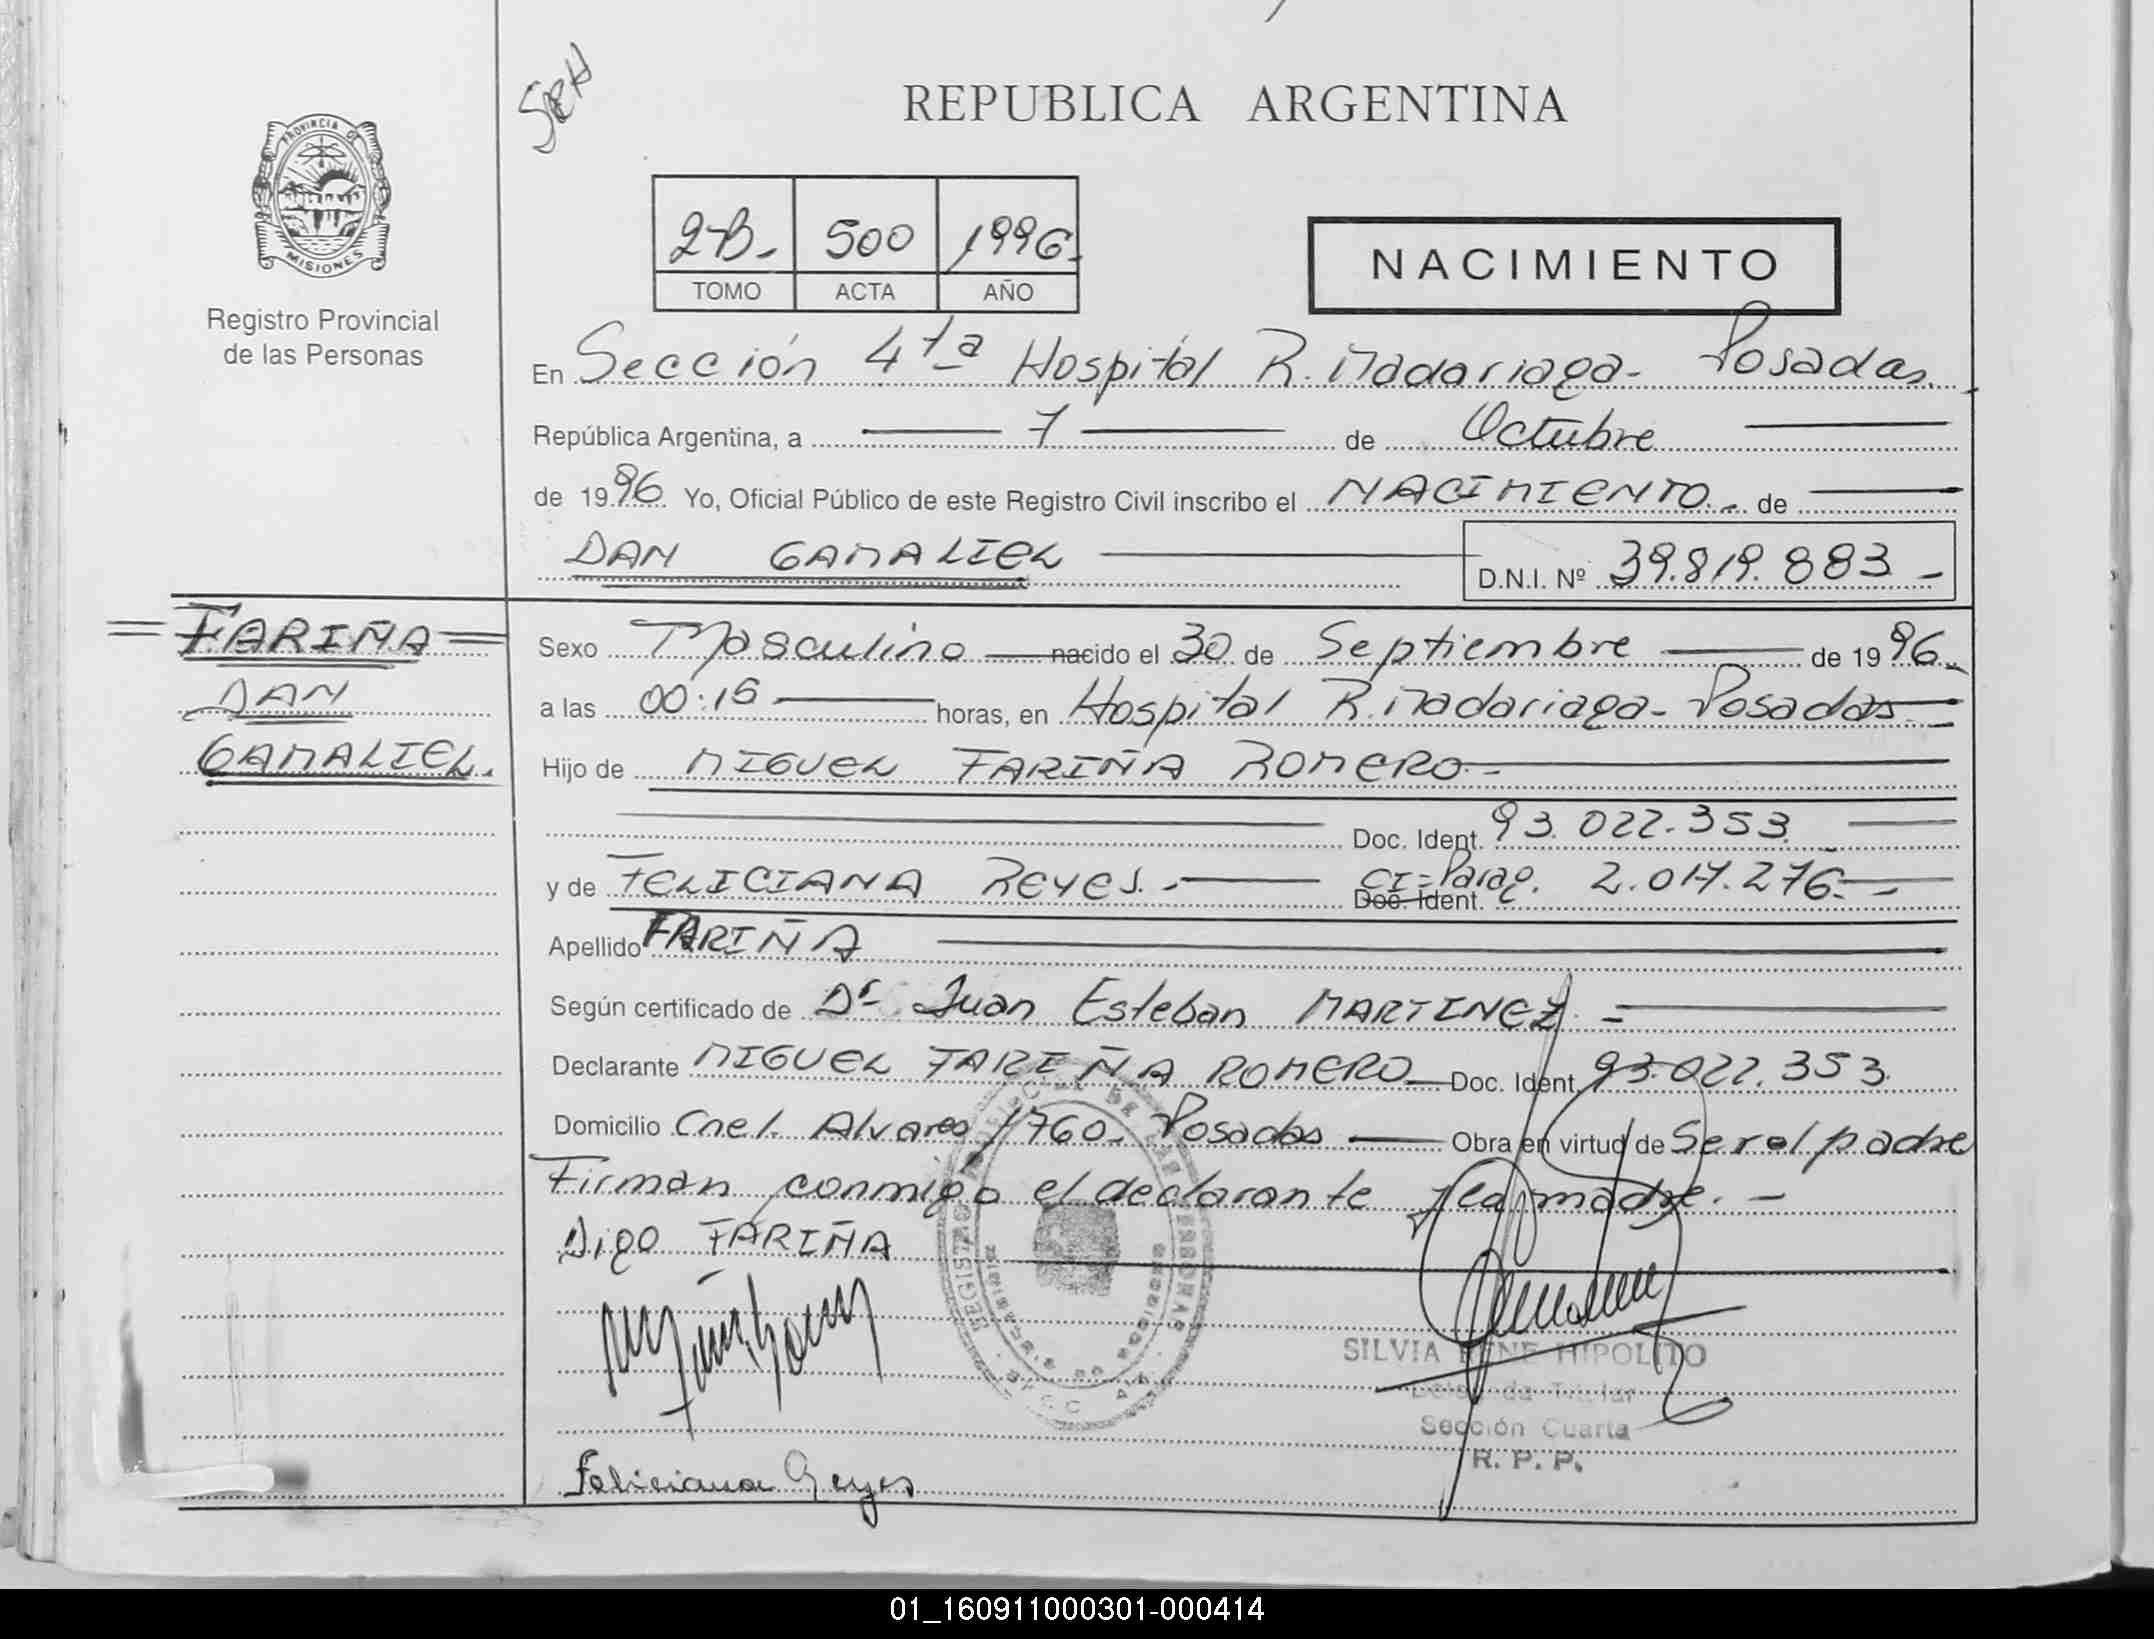 SEN
REPUBLICA ARGENTINA
PROVINCIA DE
MISIONES
Registro Provincial
de las Personas
2-B- 500 1996-
TOMO ACTA AÑO
NACIMIENTO
En Sección 4ta Hospital R. Madariaga- Posadas.
República Argentina, a 7 de Octubre
de 1996 Yo, Oficial Público de este Registro Civil inscribo el NACIMIENTO.- de
DAN GAMALIEL D.N.I. Nº 39.819.883-
= FARIÑA =
DAN
GAMALIEL.
Sexo Masculino nacido el 30 de Septiembre de 1996-
a las 00:15 horas, en Hospital R. Madariaga- Posadas
Hijo de MIGUEL FARIÑA ROMERO-
Doc. Ident. 93.022.353
y de FELICIANA REYES.- CI=Parag. Doc. Ident. 2.017.276-
Apellido FARIÑA
Según certificado de Dr Juan Esteban MARTINEZ -
Declarante MIGUEL FARIÑA ROMERO Doc. Ident. 93.022.353
Domicilio Cnel. Alvarez 1760- Posadas Obra en virtud de Ser el padre
Firman conmigo el declarante y la madre.-
Digo FARIÑA
SILVIA RENE HIPOLITO
Delegada Titular
Sección Cuarta
R. P. P.
Feliciana Reyes
01_160911000301-000414